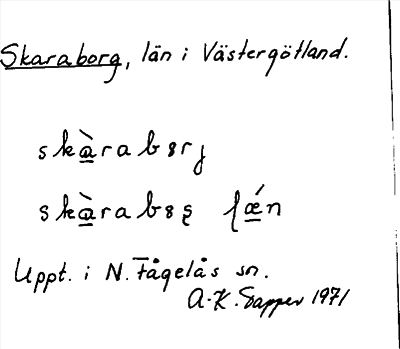 Skaraborg, län i Västergötland.
skàrabɞrj
skàrabɞs̨ lǽn
Uppt. i N. Fågelås sn.
A-K. Sapper 1971